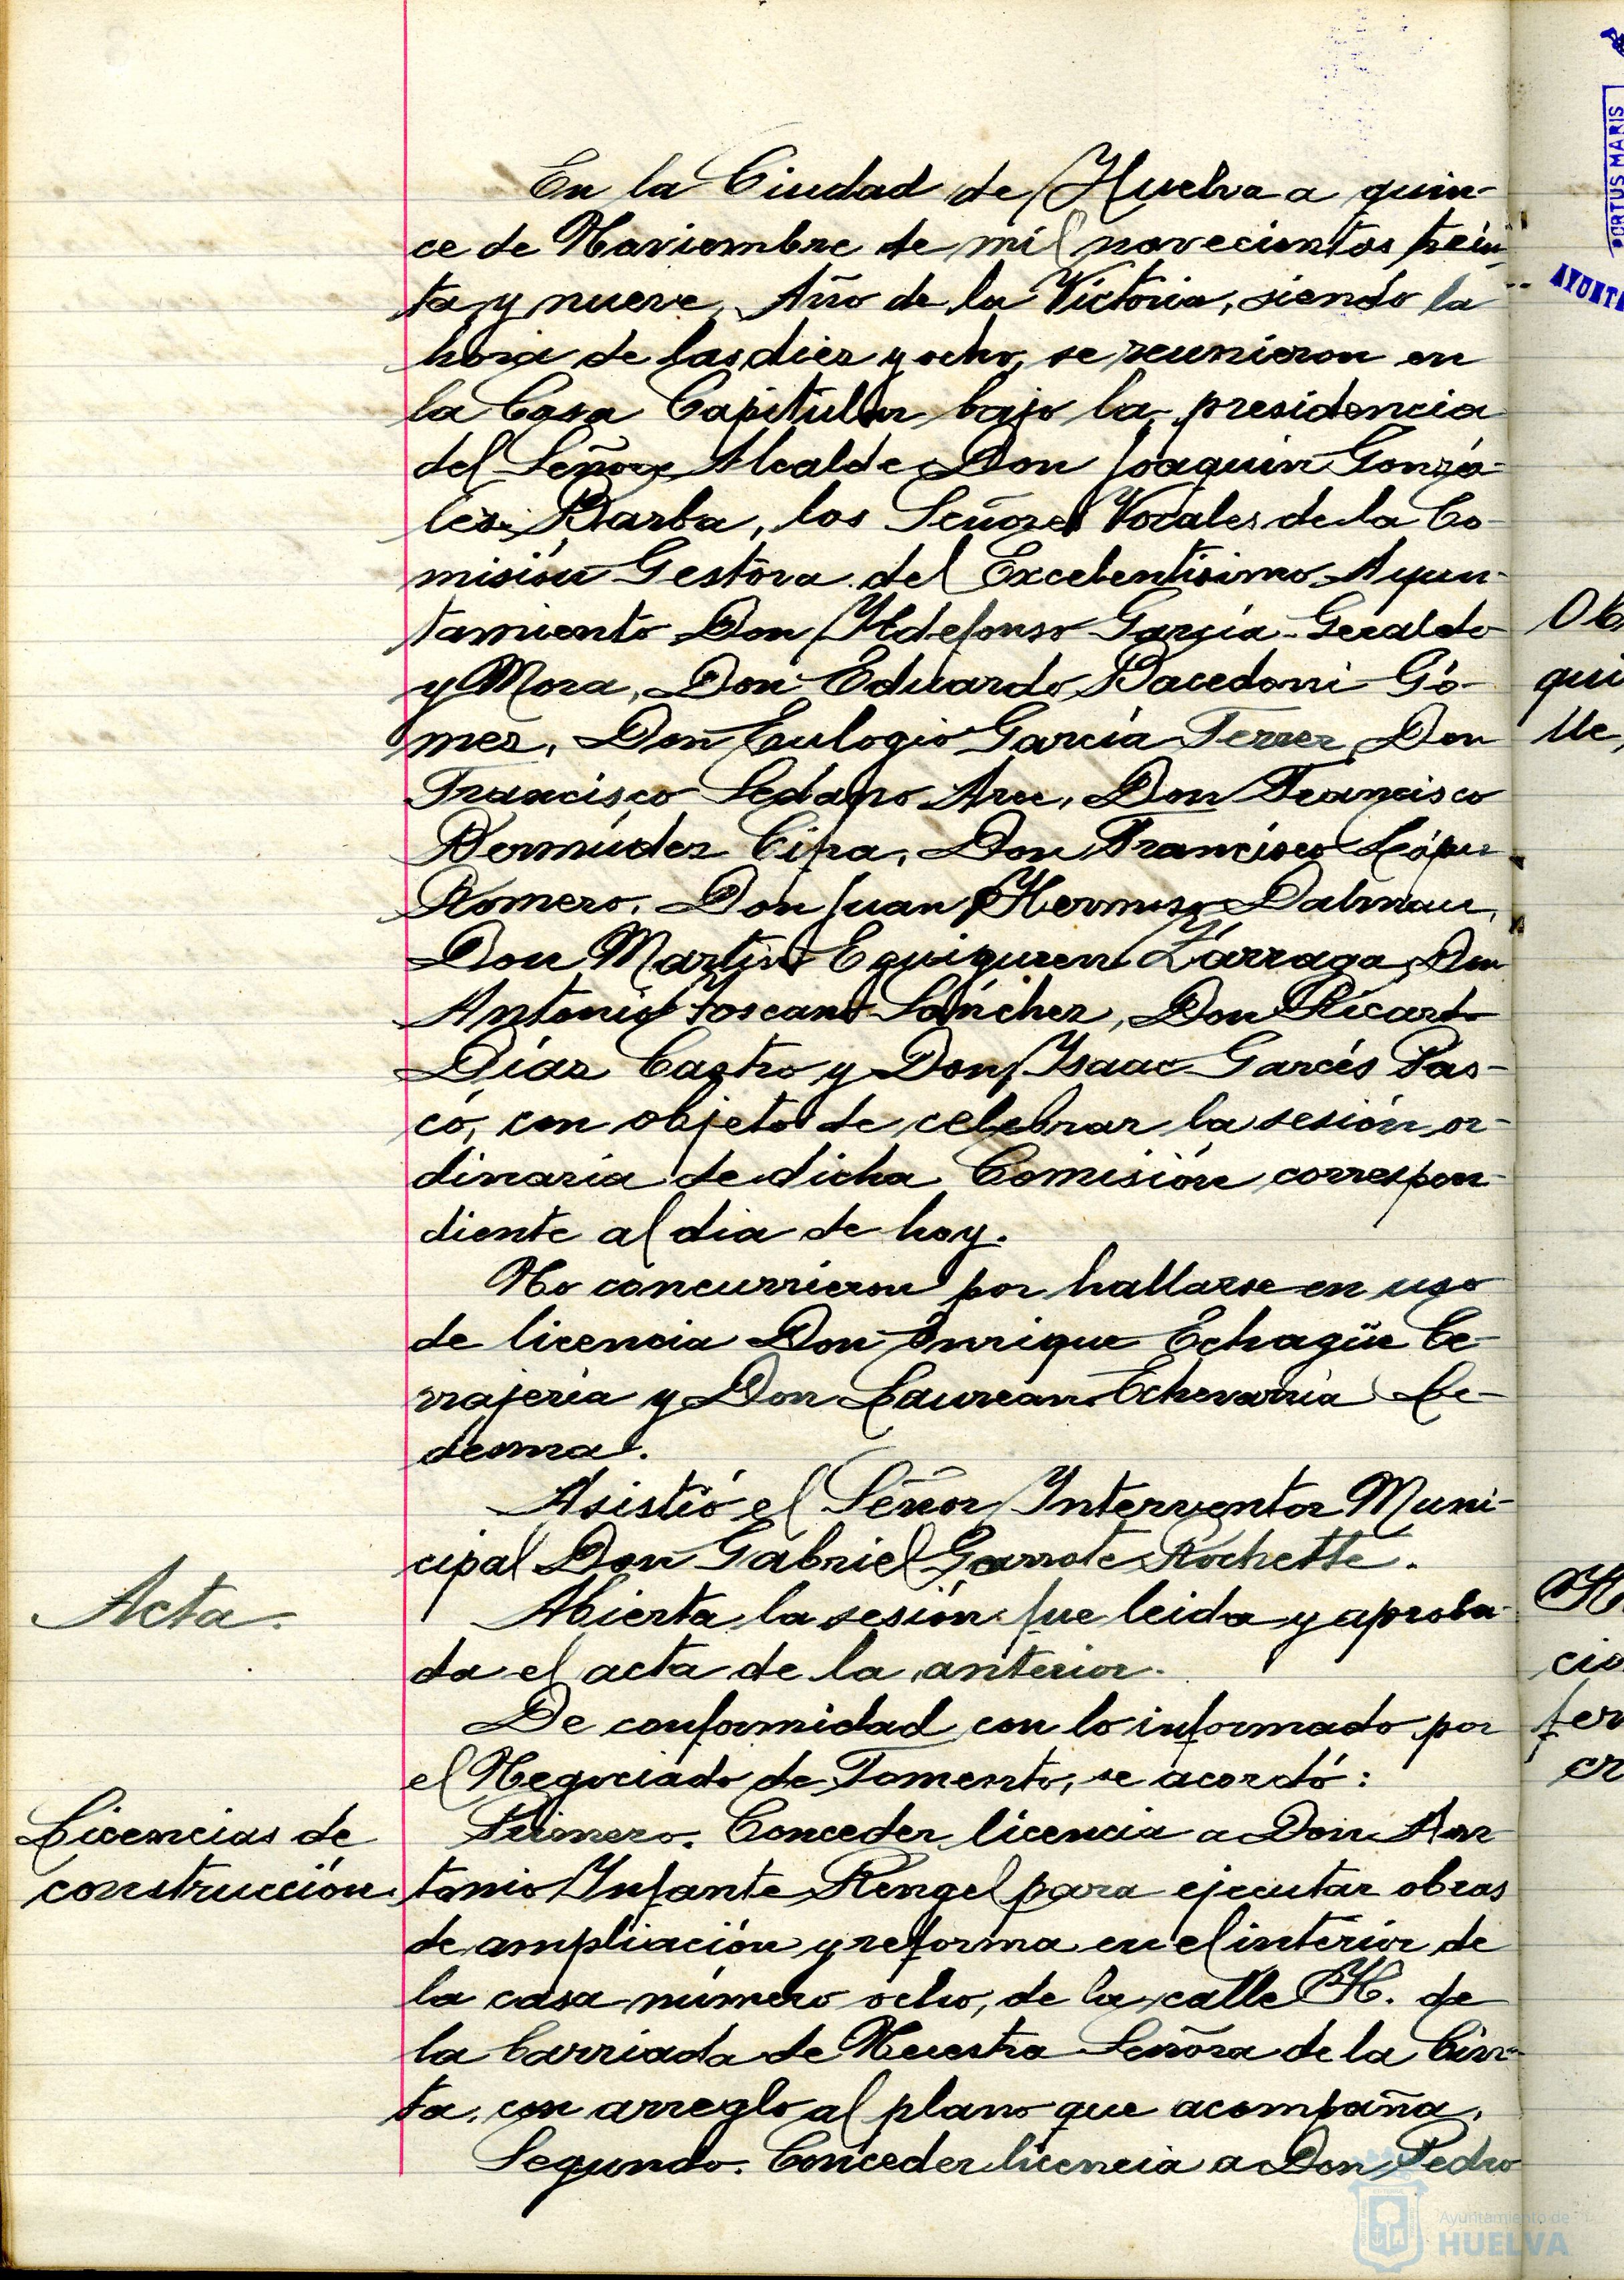 En la Ciudad de Huelva a quin-
ce de Noviembre de mil novecientos trein-
ta y nueve, Año de la Victoria, siendo la
hora de las diez y ocho, se reunieron en
la Casa Capitular bajo la presidencia
del Señor Alcalde Don Joaquin Gonzá-
lez Barba, los Señores Vocales de la Co-
misión Gestora del Excelentísimo Ayun-
tamiento Don Ildefonso García-Geraldo
y Mora, Don Eduardo Bacedoni Gó-
mez, Don Eulogio García Ferrer, Don
Francisco Sedano Arce, Don Francisco
Bermúdez Cira, Don Francisco López
Romero, Don Juan Hermoso Dalmau,
Don Martín Eguiguren Zárraga, Don
Antonio Toscano Sánchez, Don Ricardo
Díaz Castro y Don Isaac Garcés Pas-
có, con objeto de celebrar la sesión or-
dinaria de dicha Comisión correspon-
diente al dia de hoy.
No concurrieron por hallarse en uso
de licencia Don Enrique Echagüe Ce-
rrajería y Don Laureano Echevarría Le-
desma.
Asistió el Señor Interventor Muni-
cipal Don Gabriel Garrote Rochette.
Acta.
Abierta la sesión fue leida y aproba-
da el acta de la anterior.
De conformidad con lo informado por
el Negociado de Fomento, se acordó:
Licencias de
construcción.
Primero. Conceder licencia a Don An-
tonio Infante Rengel para ejecutar obras
de ampliación y reforma en el interior de
la casa número ocho, de la calle H. de
la barriada de Nuestra Señora de la Cin-
ta, con arreglo al plano que acompaña.
Segundo. Conceder licencia a Don Pedro
PORTUS MARIS
Ayuntamiento de
HUELVA